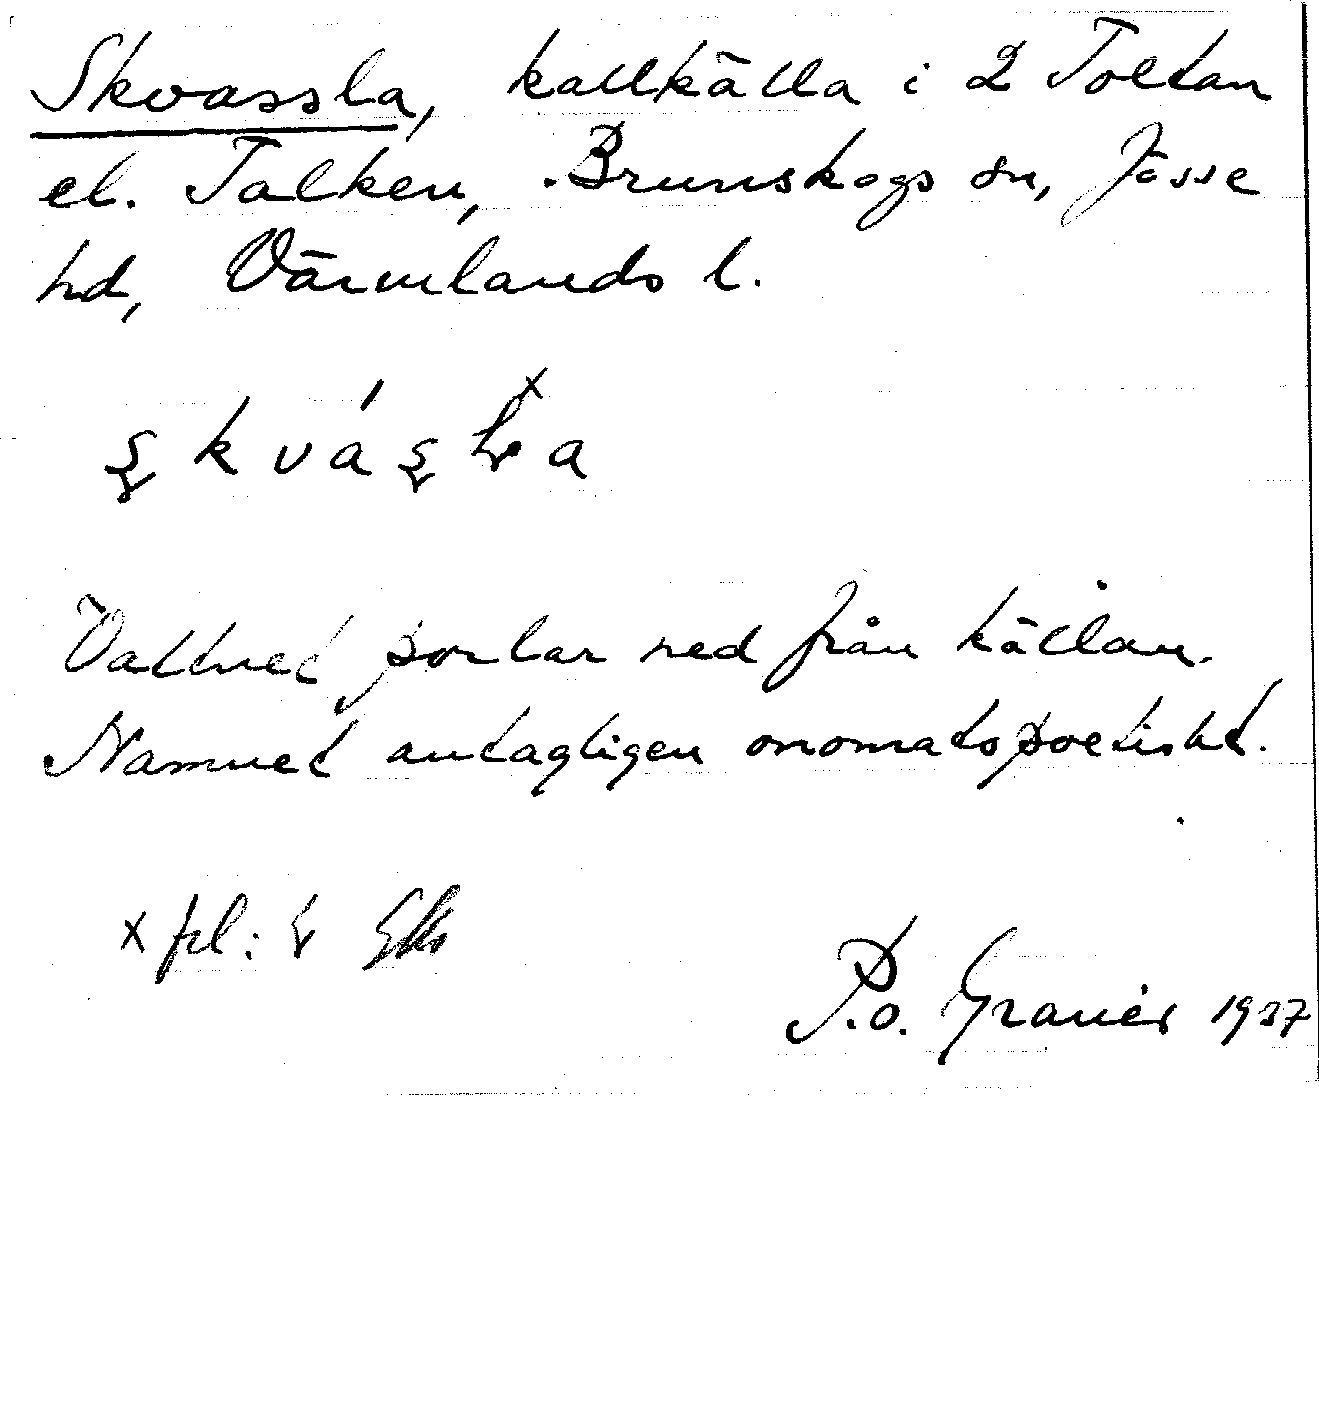 Skvassla, kallkälla i 2 Toltan
el. Talken, Brunskogs sn, Jösse
hd, Värmlands l.
Vattnet porlar ned från källan.
Namnet antagligen onomatopoetiskt.
x pl:
P.O. Granér 1937